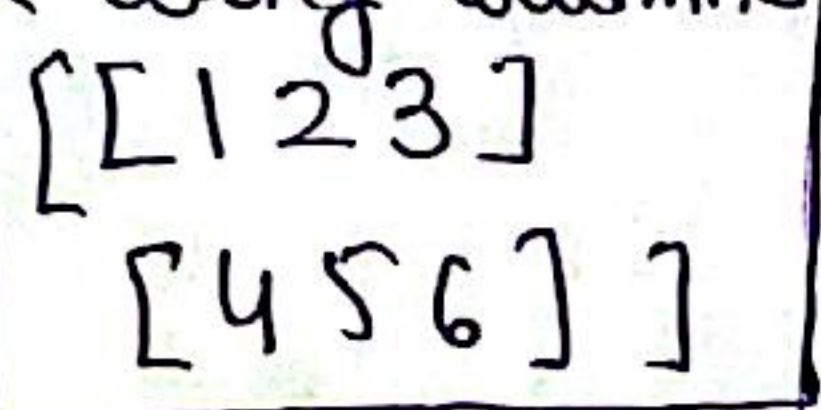 [[1 2 3]
[4 5 6] ]